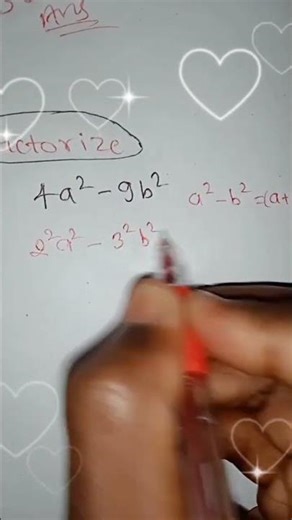 Ans
actorize
4a² - 9b² a² - b² = (a+
2²a² - 3²b²